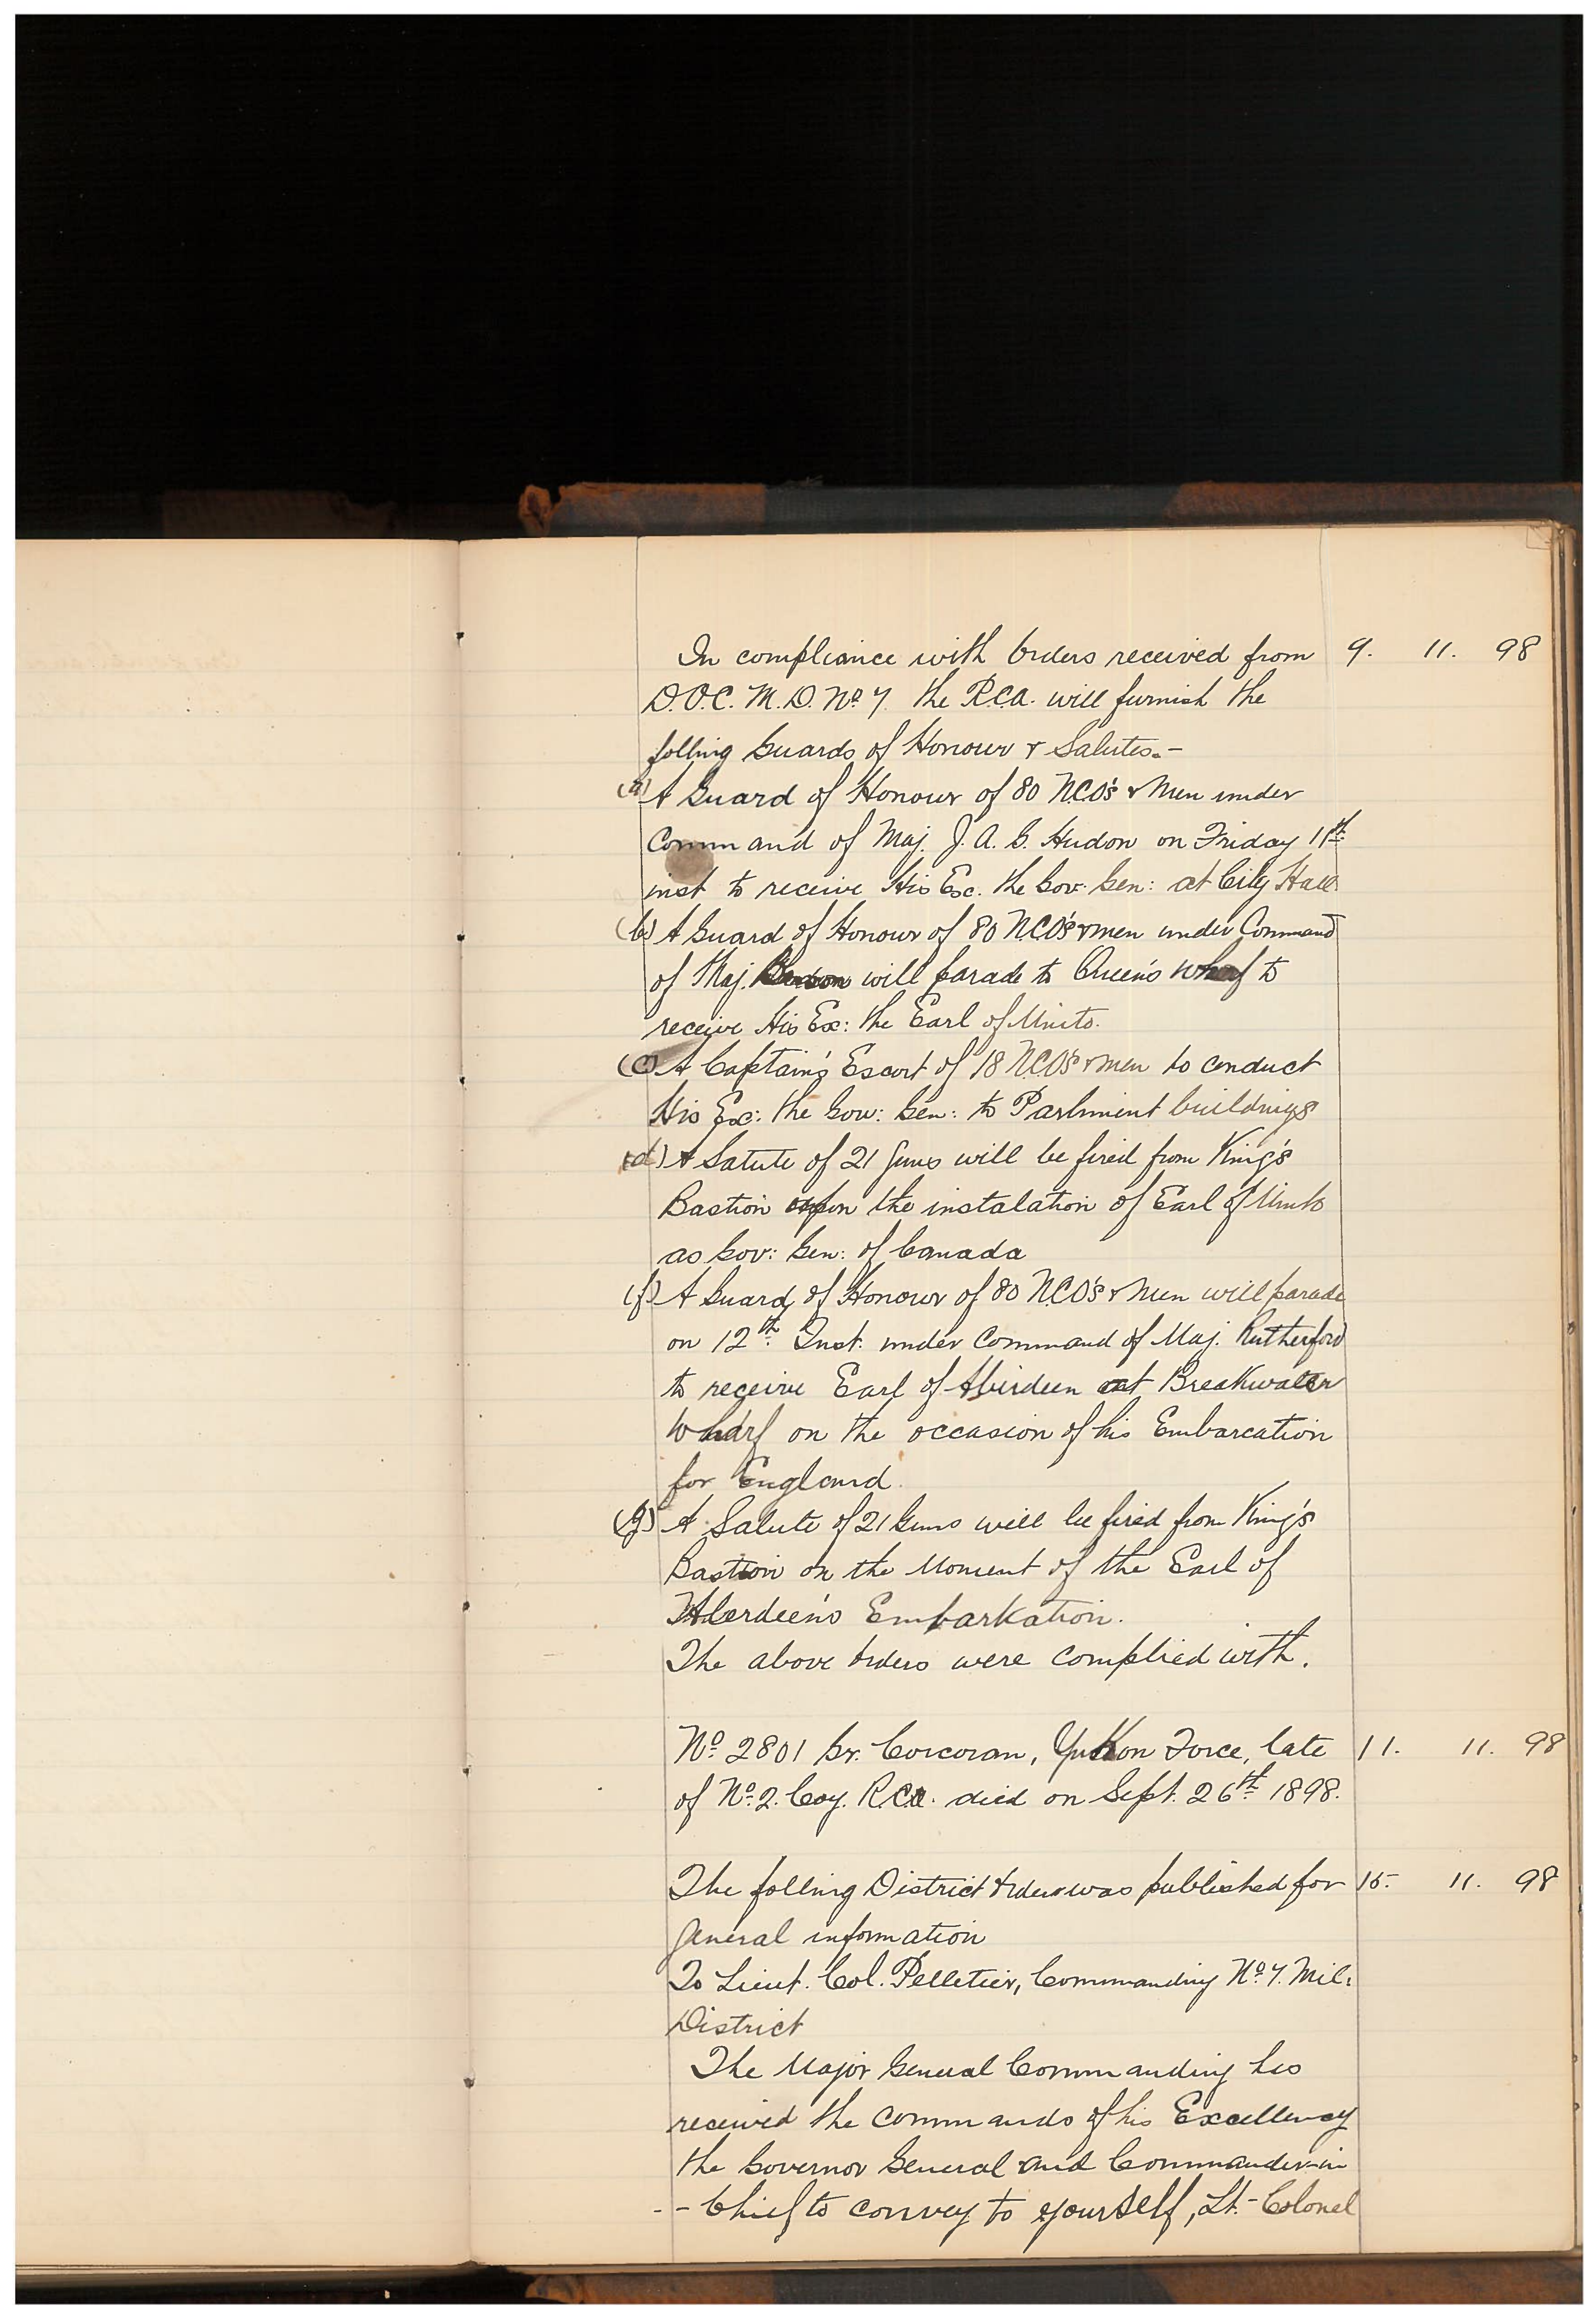 In compliance with Orders received from 9. 11. 98
D.O.C. M.D. No 7. the R.C.A. will furnish the
folling Guards of Honour & Salutes.-
(a) A Guard of Honour of 80 N.C.O's & Men under
Command of Maj. J. A. G. Hudon on Friday 11th
inst to receive His Exc. the Gov. Gen: at City Hall.
(b) A Guard of Honour of 80 N.C.O's & men under Command
of Maj. will parade to Queen's wharf to
receive His Ex: the Earl of Minto.
(c) A Captain's Escort of 18 N.C.O's & men to conduct
His Exc: the Gov: Gen: to Parliment buildings
(d) A Salute of 21 Guns will be fired from King's
Bastion upon the instalation of Earl of Minto
as Gov: Gen: of Canada
(f) A Guard of Honour of 80 N.C.O's & Men will parade
on 12th Inst. under Command of Maj. Rutherford
to receive Earl of Aberdeen at Breakwater
Wharf on the occasion of his Embarcation
for England.
(g) A Salute of 21 Guns will be fired from King's
Bastion on the Moment of the Earl of
Aberdeen's Embarkation.
The above Orders were complied with.
No. 2801 Gr. Corcoran, Yukon Force, late 11. 11. 98
of No. 2. Coy. R.C.A. died on Sept. 26th 1898.
The folling District Order was published for 15. 11. 98
General information
To Lieut. Col. Pelletier, Commanding No. 7. Mil:
District
The Major General Commanding has
received the commands of his Excellency
the Governor General and Commander-in
-- Chief to convey to yourself, Lt.-Colonel